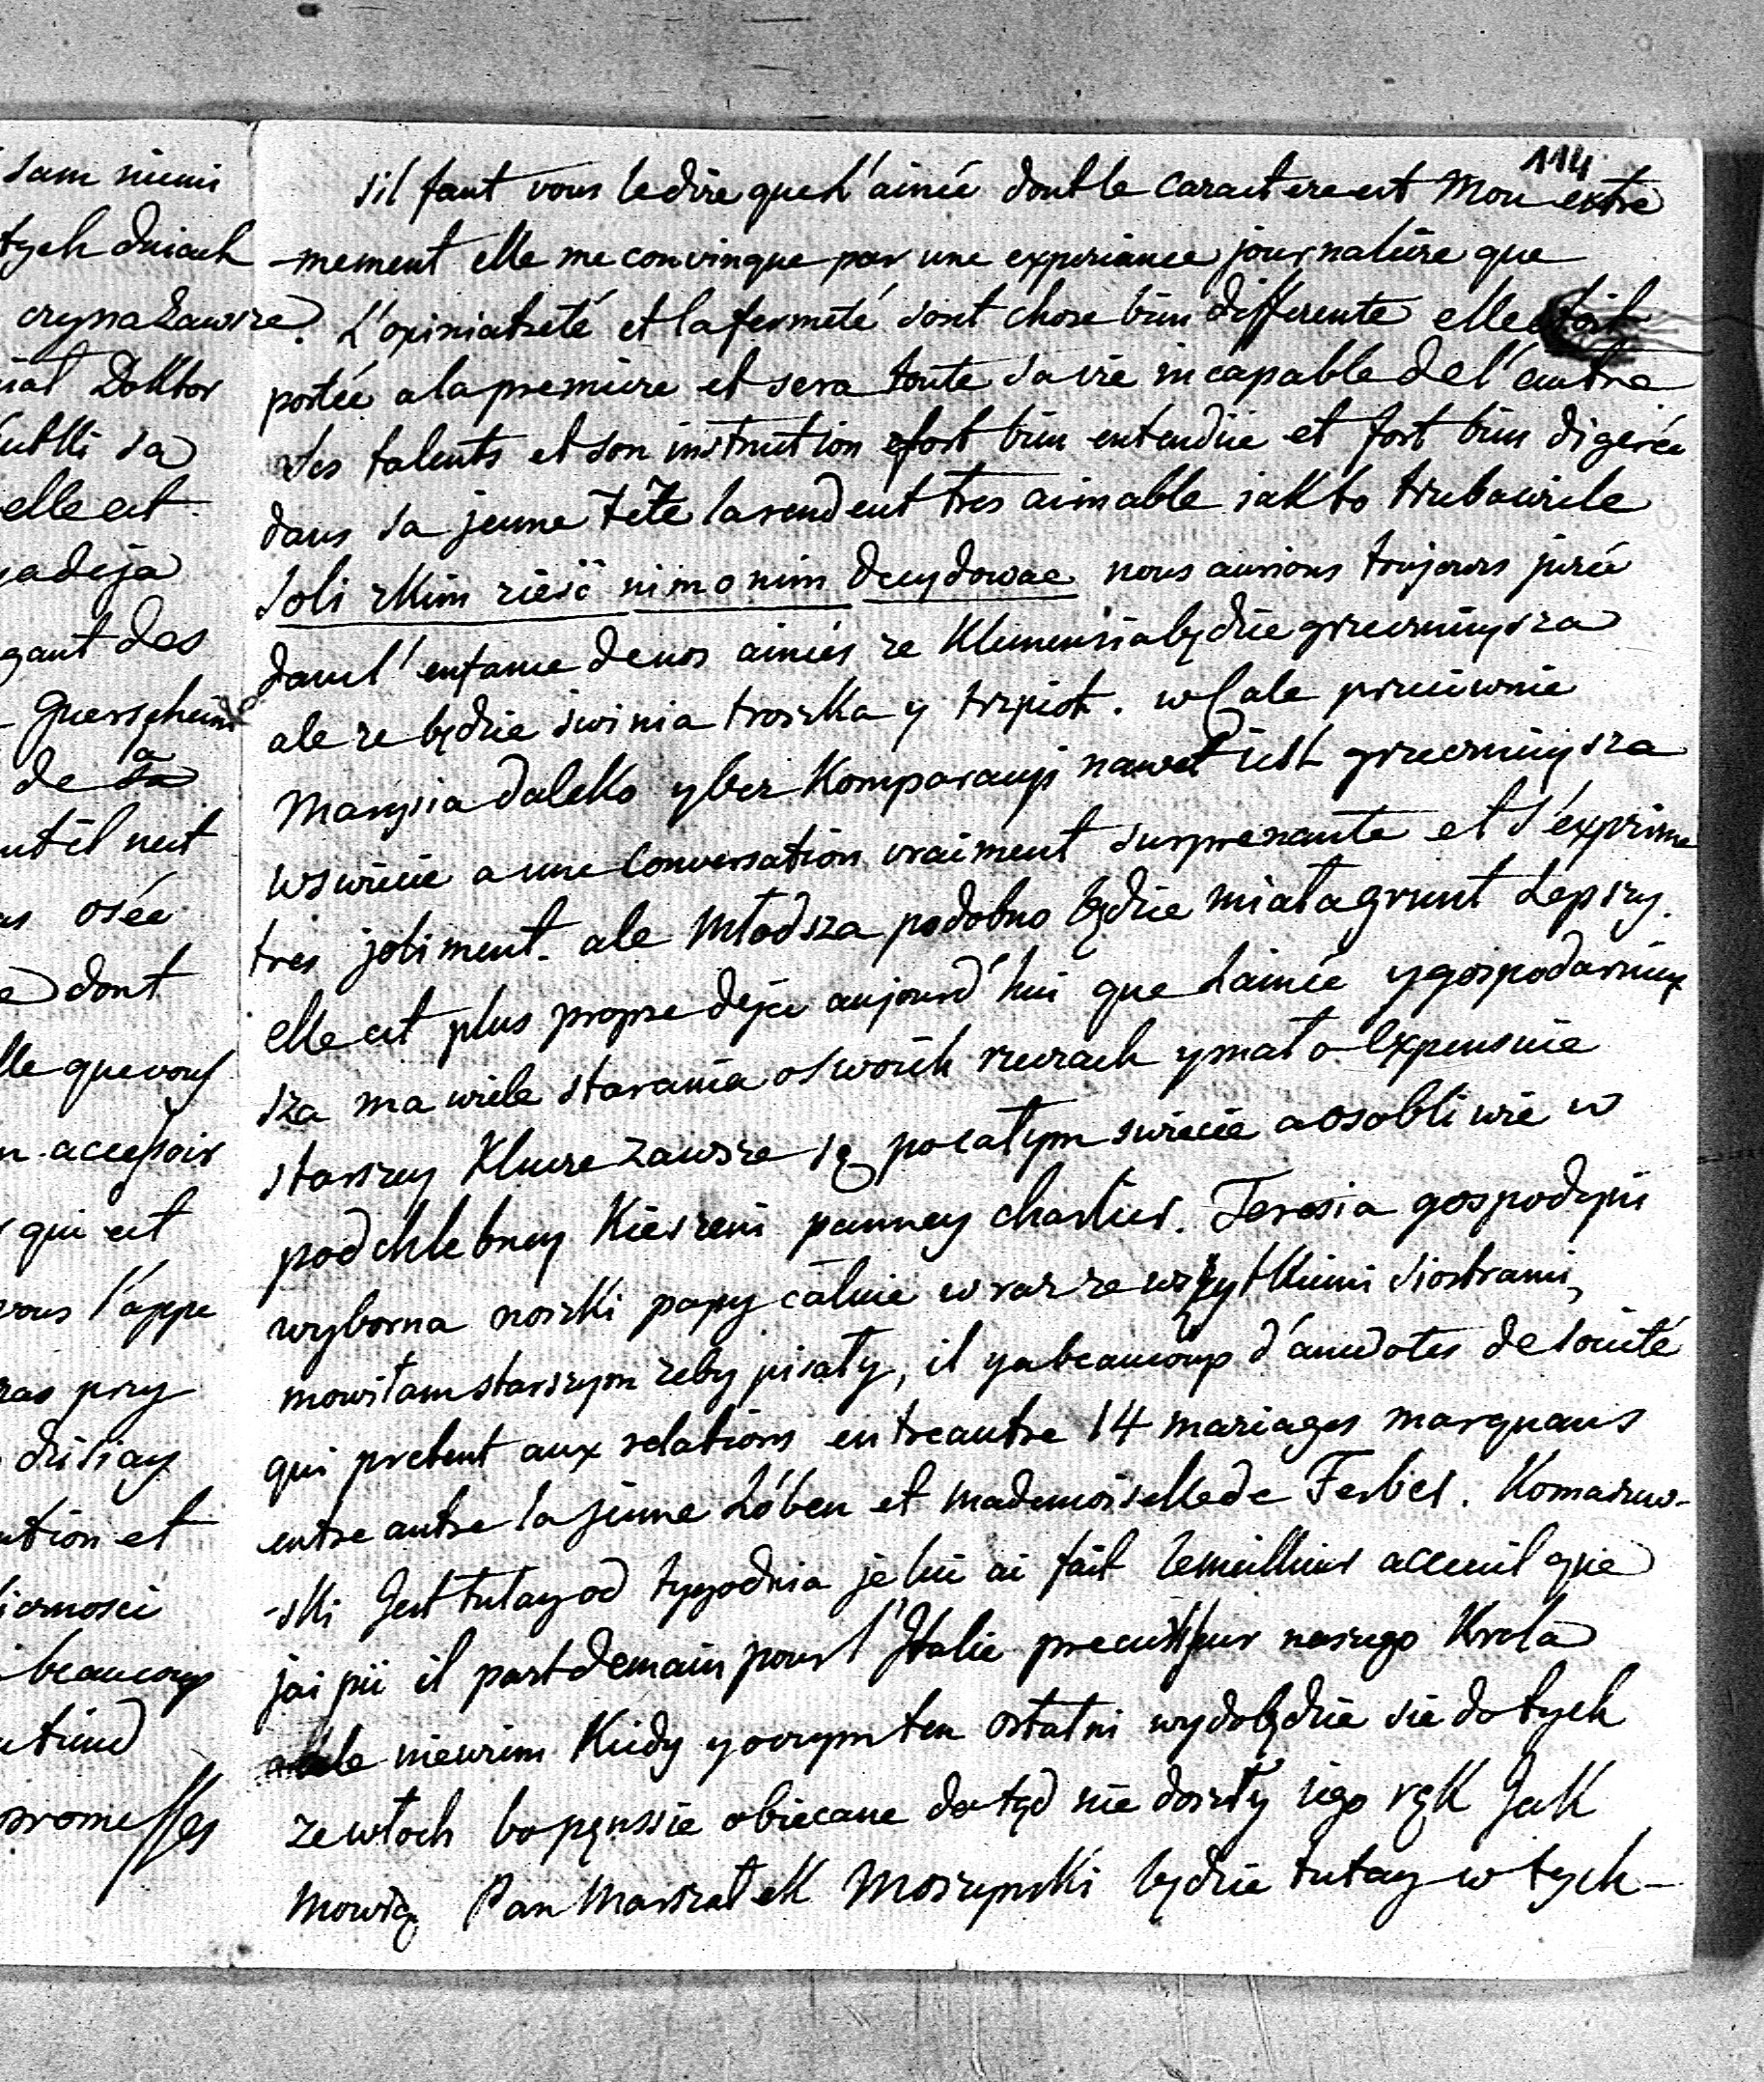 sam niemi
tych dniach
czyna zawsze
iał Doktor
sa
elle est
a deja
gant des
de la
ut il neut
as osée
dont
lle que vous
n accessoir
qui est
vous l'appe
zas przy
dzisiay
ution et
beaucoup
promesses
114
s'il faut vous le dire que L'ainée dont le caractere est Mou extre
-mement elle me convinque par une experiance journaliere que
L'opiniatreté et la fermeté sont chose bien differente elle etoit
portée a la premiere et sera toute sa vie incapable de l'autre
ses talents et son instrution fort bien entendüe et fort bien digerée
dans sa jeune tête la rendent tres aimable iak to trzeba wiele
Soli z kim zieść nim o nim decydowac nous aurions toujours juré
dans l'enfance de nos ainées ze Klimunia będzie grzecznieysza
ale ze będzie swinia troszka y trzpiot. w Cale przeciwnie
Marysia daleko y bez Komparacyi nawet iest grzecznieysza
w swiecie a une Conversation vraiment surprenante et s'exprime
tres joliment. ale Młodsza podobno będzie miała grunt Lepszy.
elle est plus propre deja aujourd'hui que Lainée y gospodarniey
sza ma wiele starania o swoich rzeczach y mało Expensuie
starszey Klucze zawsze są po całym swiecie a osobliwie w
podchlebney Kieszeni panney charlies. Teresia gospodynie
wyborna noszki papy całuie w raz ze wszytkiemi siostrami,
mowiłam starszym zeby pisały, il y a beaucoup d'anecdotes de societé
qui pretent aux relations entre autre 14 mariages marquans
entre autre la jeune Löben et mademoiselle de Ferber. Komarzew-
-ski Jest tutay od tygodnia je lui ai fait le meilleur acceuil que
j'ai pü il part demain pour l'Italie precurseur naszego Krola
ale niewiem Kiedy y o czym ten ostatni wydobędzie sie do tych
ze włoch bo pęnssie obiecane dotąd nie doszły iego rąk Jak
mowią Pan Marszałek Moszynski będzie tutay w tych-